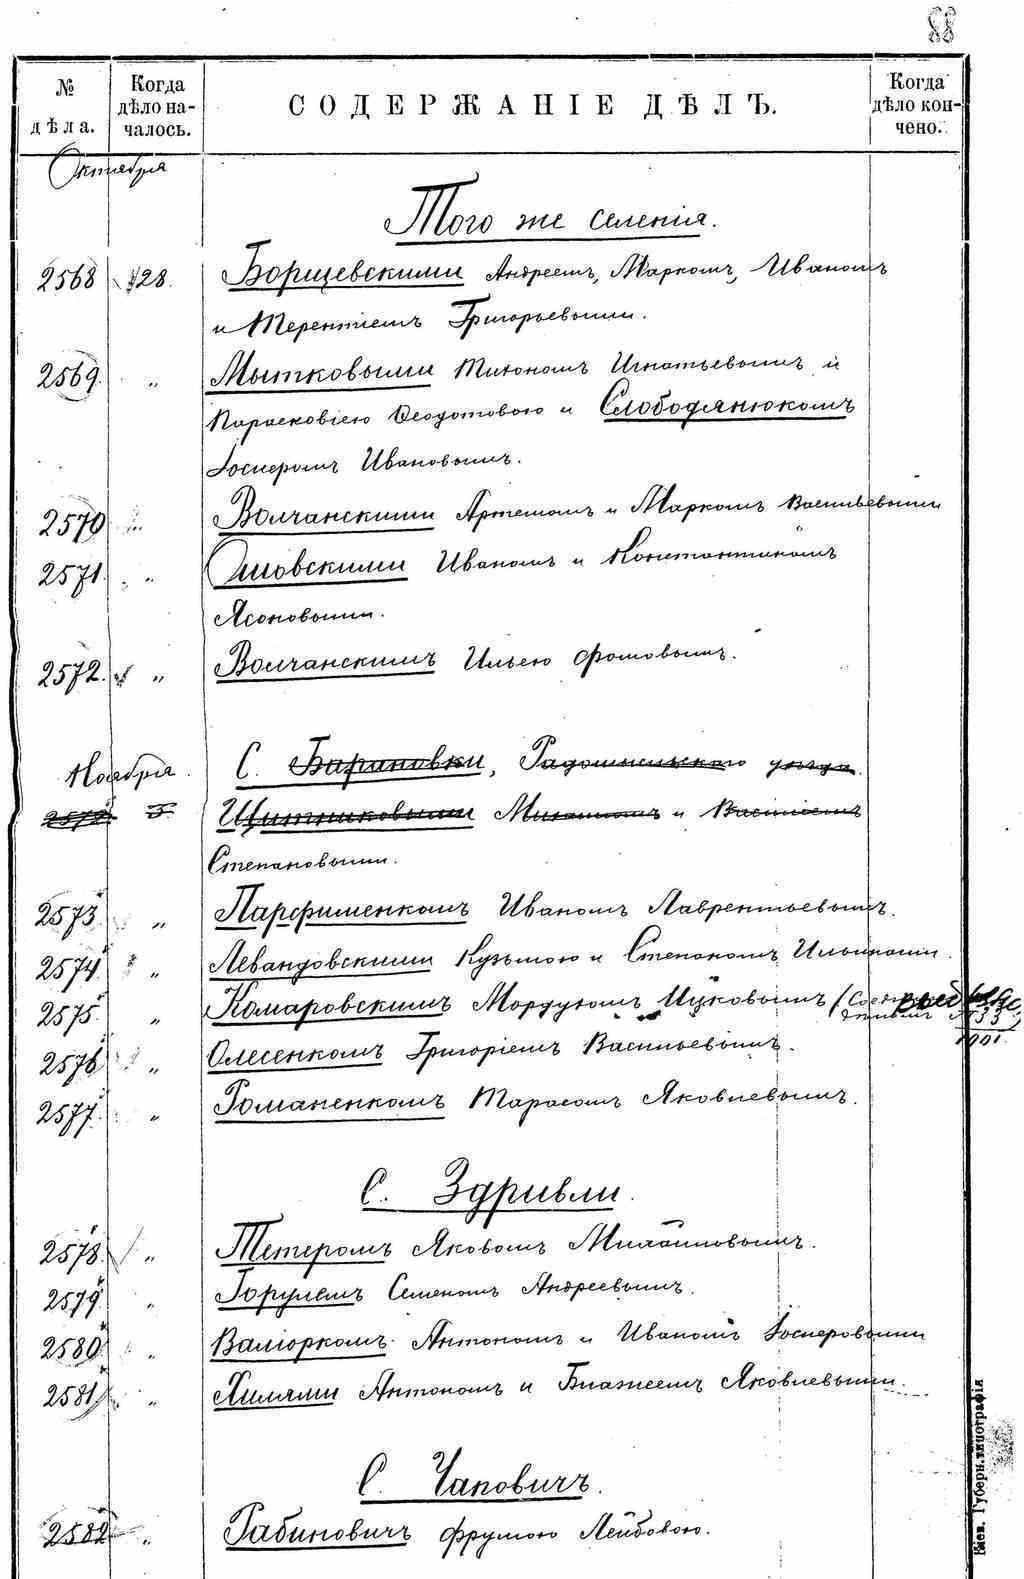 88
№ дѣла.
Когда дѣло началось.
СОДЕРЖАНІЕ ДѢЛЪ.
Когда дѣло кончено.
Октября
Того же селенія.
2568 28. Борщевскими Андреемъ, Маркомъ, Иваномъ
и Терентіемъ Григорьевыми.
2569. " Мытковыми Тихономъ Игнатьевымъ и
Парасковіею Ѳеодотовою и Слободянюкомъ
Іосифомъ Ивановымъ.
2570 " Волчанскими Артемомъ и Маркомъ Васильевыми
2571. " Иваномъ и Константиномъ
Ясоновыми.
2572. " Волчанскимъ Ильею Фомовымъ.
Ноября.
С. Барановки, Радомысльскаго уѣзда.
2573 3. Щитниковыми и
Степановыми.
2573. " Парфименкомъ Иваномъ Лаврентьевымъ.
2574 " Левандовскими Кузьмою и Степаномъ Ильиными.
2575. " Комаровскимъ Мордухомъ Ицковымъ
1901.
2576 " Олесенкомъ Григоріемъ Васильевымъ.
2577. " Романенкомъ Тарасомъ Яковлевымъ.
С. Здривли.
2578. " Тетеромъ Яковомъ Михайловымъ.
2579 " Горулемъ Семеномъ Андреевымъ.
2580 " Валіоркомъ Антономъ и Иваномъ Іосифовыми
2581 " Хилями Антономъ и Блажеемъ Яковлевыми.
С. Чаповичъ.
2582 " Рабиновичъ Фрумою Лейбовою.
Кіев. Губерн. типографія